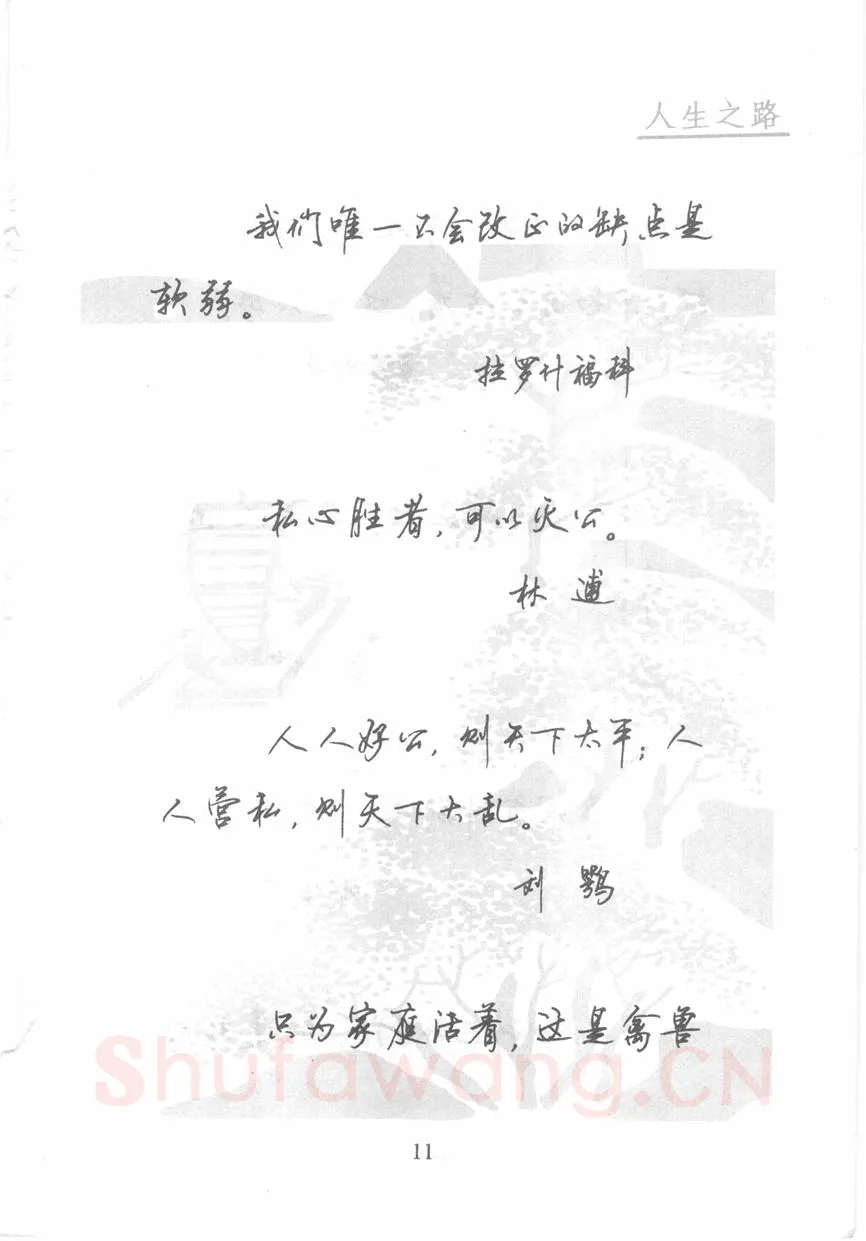 人生之路
我们唯一不会改正的缺点是
软弱。
拉罗什福科
私心胜者,可以灭公。
林逋
人人好公,则天下太平;人
人营私,则天下大乱。
刘鹗
只为家庭活着,这是禽兽
Shufawang.CN
11